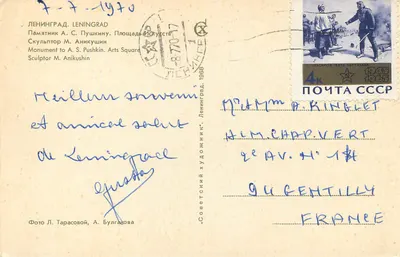 7-7-1970
ЛЕНИНГРАД. LENINGRAD
Памятник А. С. Пушкину. Площадь Искусств
Скульптор М. Аникушин
Monument to A. S. Pushkin. Arts Square
Sculptor M. Anikushin
Meilleur souvenir
et amical salut
de Leningrad
Фото Л. Тарасовой, А. Булгакова
"Советский художник". Ленинград. 1968
ЛЕНИНГРАД
4к
ПОЧТА СССР
Mr Mme A.
CHAP. VERT
2e AV. N° 14
94 GENTILLY
FRANCE